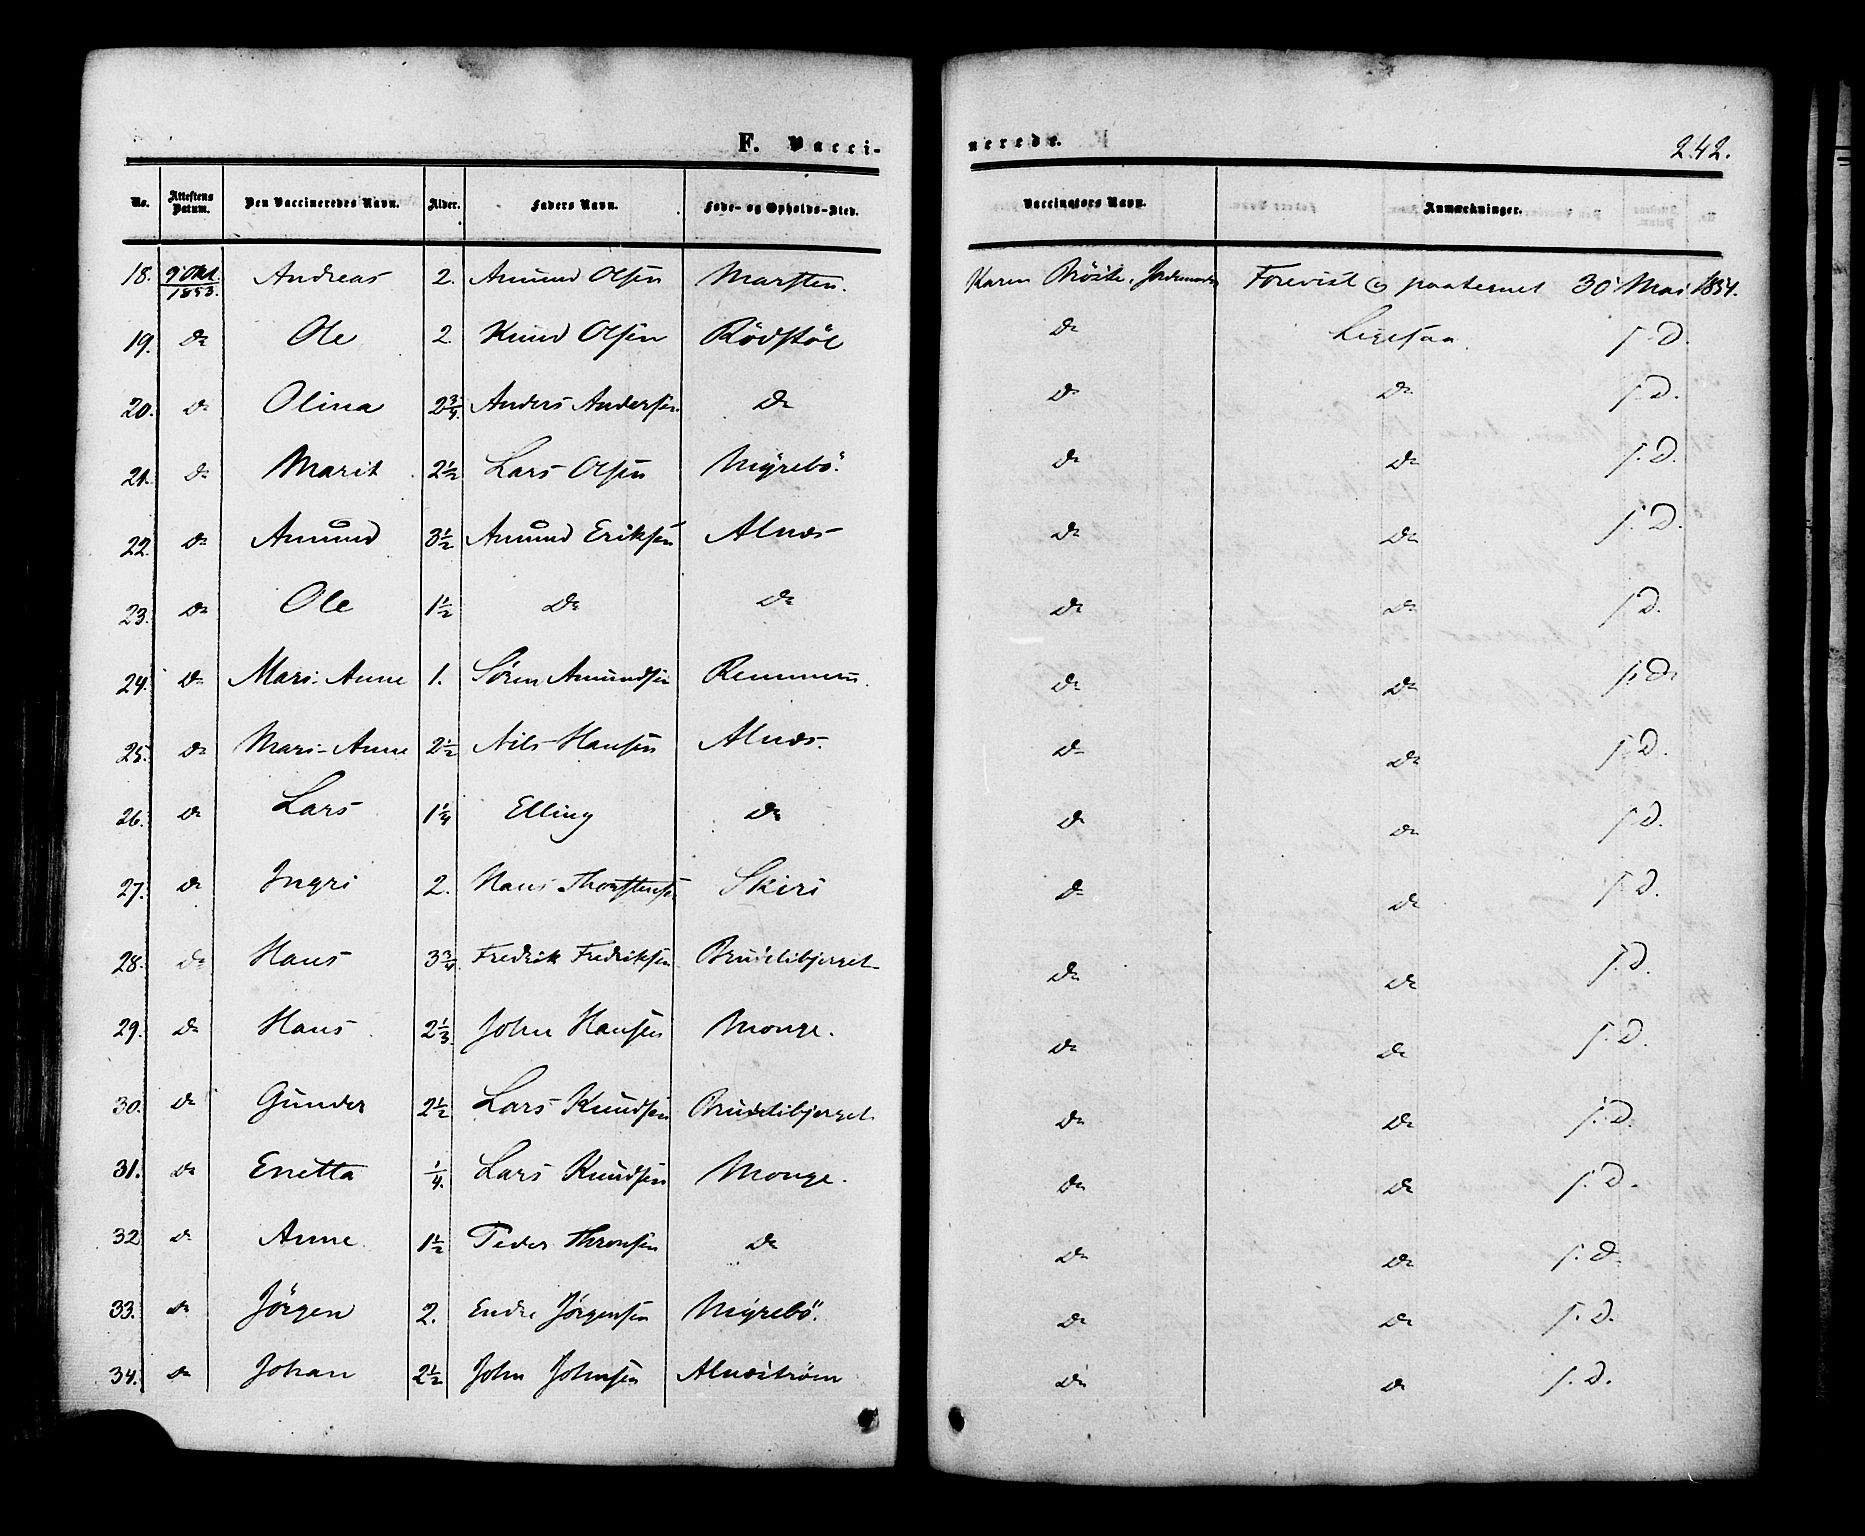 F. Vacci-
nerede.
242.
No. Attestens Datum. Den Vaccineredes Navn. Alder. Faders Navn. Føde- og Opholds-Sted. Vaccinators Navn. Anmærkninger.
18. 9 Okt. 1853. Andreas 2. Amund Olsen Marsten. Karen Jordemoder Forevist og paategnet 30 Mai 1854.
19. do Ole 2. Knud Olsen Rödstöl do Ligesaa. s. D.
20. do Olina 2 3/4. Anders Andersen do do do s. D.
21. do Marit 2 1/2 Lars Olsen Myrebö. do do s. D.
22. do Amund 3 1/2 Amund Eriksen Alnæs do do s. D.
23. do Ole 1 1/2 do do do do s. D.
24. do Mari-Anne 1. Sören Amundsen Remmem. do do s. D.
25. do Mari-Anne 2 1/2 Nils Hansen Alnæs. do do s. D.
26. do Lars 1 1/4 Elling do do do s. D.
27. do Ingri 2. Hans Thorstensen Skiri do do s. D.
28. do Hans 3 3/4. Fredrik Fredriksen do do s. D.
29. do Hans 2 1/3. John Hansen Monge. do do s. D.
30. do Gunder 2 1/2 Lars Knudsen do do s. D.
31. do Enetta 1/4. Lars Knudsen Monge. do do s. D.
32 do Anne 1 1/2 Peder Thronsen do do do s. D.
33. do Jörgen 2. Endre Jörgensen Myrebö. do do s. D.
34. do Johan 2 1/2 John Johnsen Alnæström do do s. D.